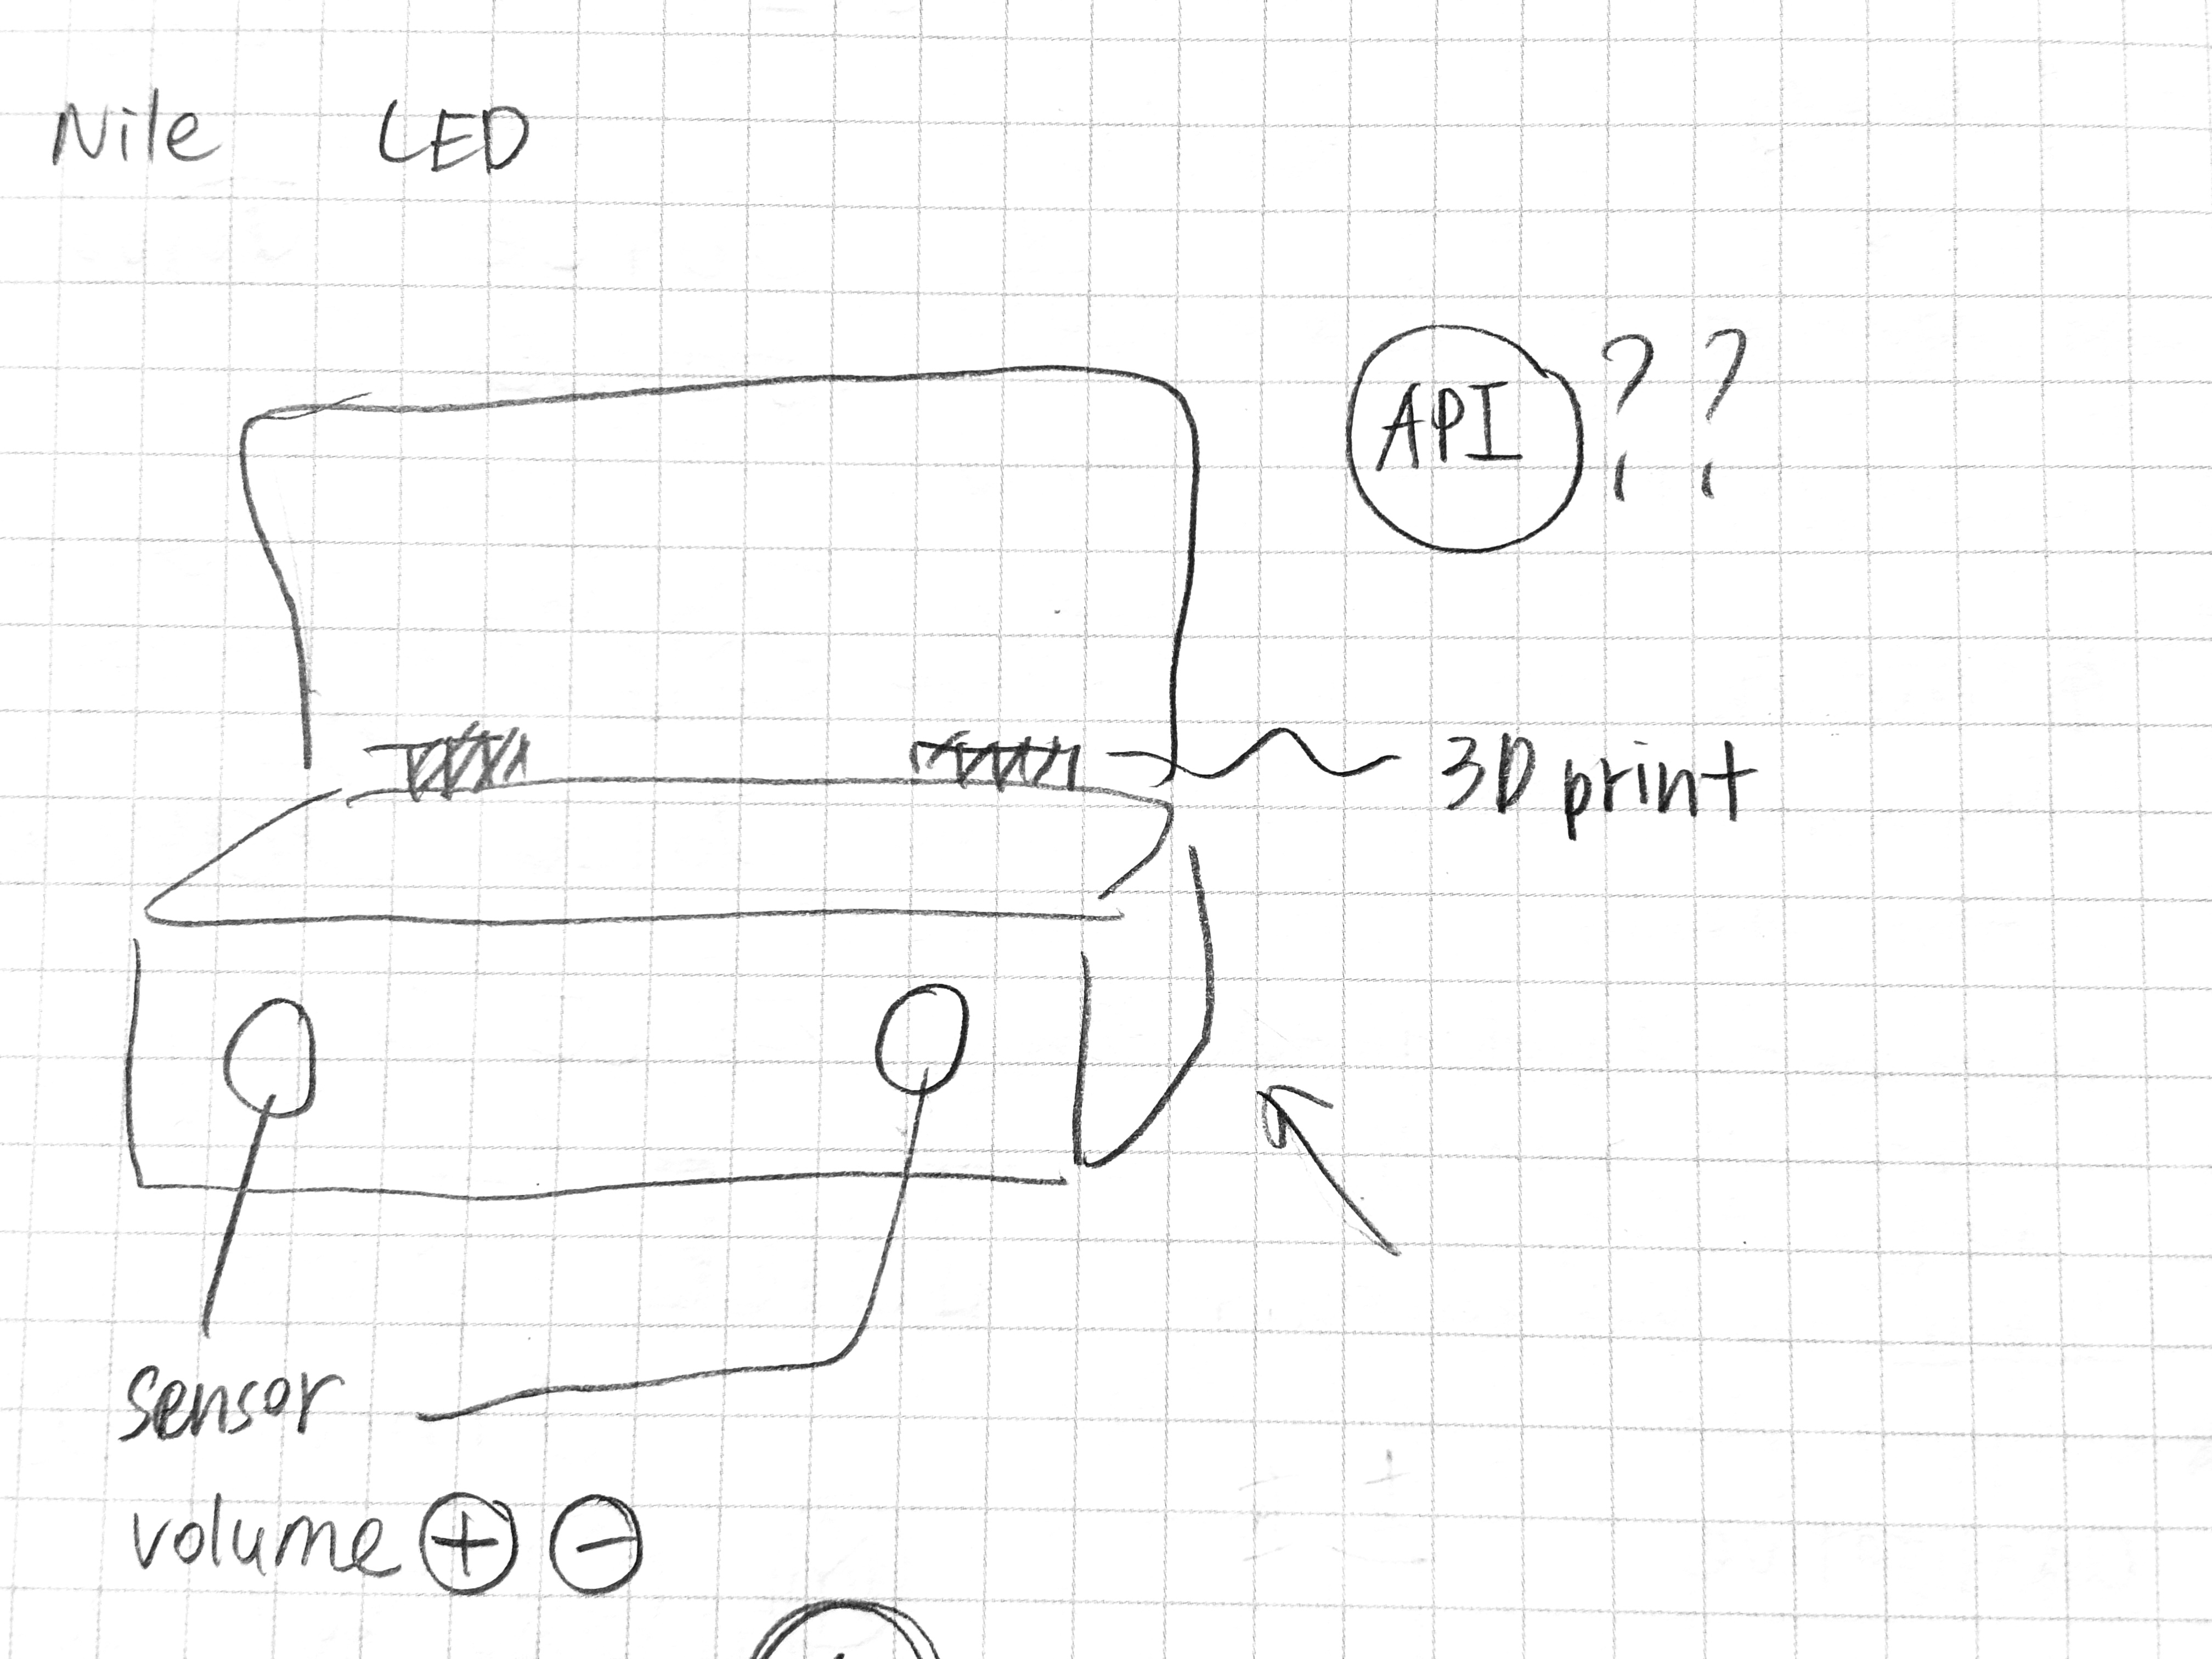 Nile LED
API ??
3D print
sensor
volume + -